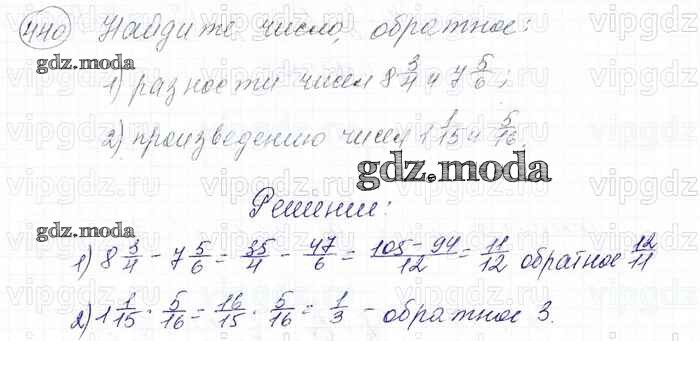 440 Найдите число, обратное:
gdz.moda
1) разности чисел 8 3/4 и 7 5/6;
2) произведению чисел 1 1/15 и 5/16.
gdz.moda
Решение:
gdz.moda
1) 8 3/4 - 7 5/6 = 35/4 - 47/6 = 105-94/12 = 11/12 обратное 12/11
2) 1 1/15 · 5/16 = 16/15 · 5/16 = 1/3 - обратное 3.